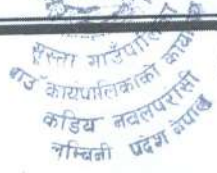 सुस्ता गाउँपालिका
गाउँ कार्यपालिकाको कार्यालय
कुडिया नवलपरासी
लुम्बिनी प्रदेश नेपाल